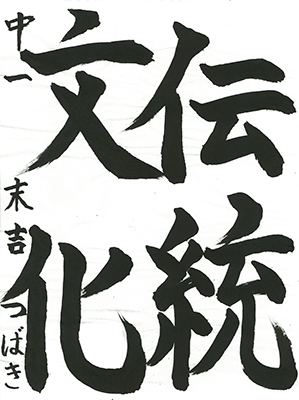 伝統
文化
中一 末吉 つばき